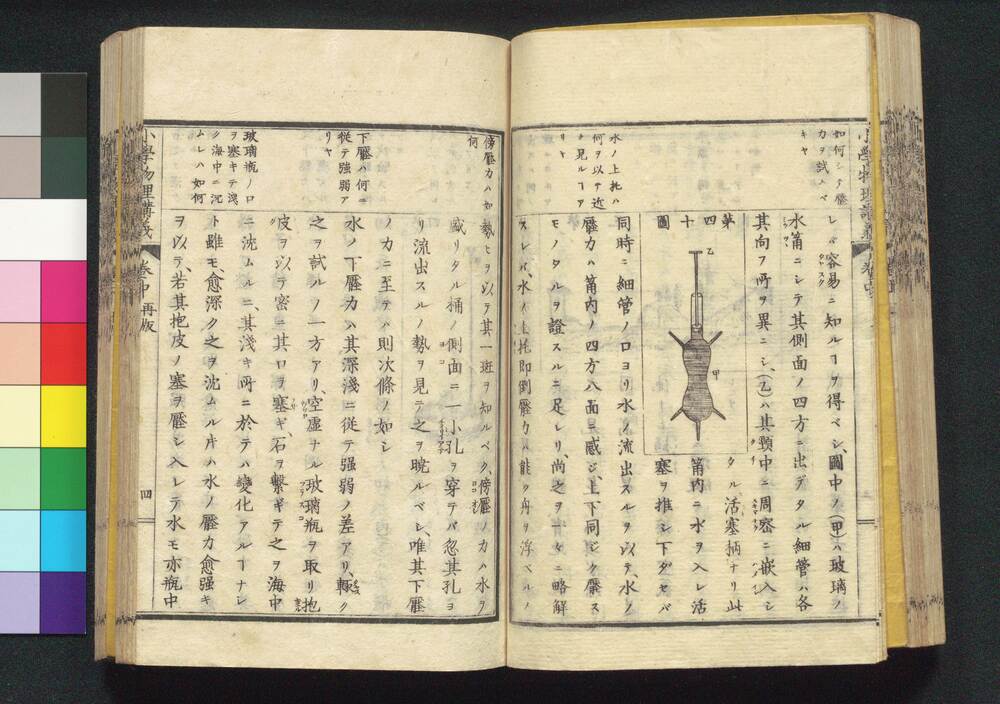 如何シテ壓
力ヲ試ムベ
キヤ
レバ容易ニ知ルヿヲ得ベシ、圖中ノ(甲)ハ玻璃ノ
水筩ニシテ其側面ノ四方ニ出デタル細管ハ各
其向フ所ヲ異ニシ、(乙)ハ其頸中ニ周密ニ嵌入シ
タル活塞柄ナリ此
筩内ニ水ヲ入レ活
塞ヲ推シ下ダセバ
第四十圖
乙
甲
水ノ上托ハ
何ヲ以テ近
ク見ルヿア
リヤ
同時ニ細管ノ口ヨリ水ノ流出スルヲ以テ、水ノ
壓力ハ筩内ノ四方八面ニ感ジ、上下同シク壓ス
モノタルヲ證スルニ足レリ、尚之ヲ一々ニ略解
スレバ、水ノ上托即倒壓力ハ能ク舟ヲ浮ベルノ
小學物理講義 卷中
傍壓力ハ如
何
勢ヒヲ以テ其一斑ヲ知ルベク、傍壓ノ力ハ水ヲ
盛リタル桶ノ側面ニ一小孔ヲ穿テバ忽其孔ヨ
リ流出スルノ勢ヲ見テ之ヲ暁ルベシ、唯其下壓
ノ力ニ至テハ則次條ノ如シ
下壓ハ何ニ
從テ強弱ア
リヤ
水ノ下壓力ハ其深淺ニ從テ强弱ノ差アリ、輙ク
之ヲ試ルノ一方アリ、空虚ナル玻璃瓶ヲ取リ抱
皮ヲ以テ密ニ其口ヲ塞ギ、石ヲ繫ギテ之ヲ海中
ニ沈ムルニ、其淺キ所ニ於テハ變化アルヿナシ
玻璃瓶ノ口
ヲ塞キテ深
ク海中ニ沉
ムレハ如何
ト雖モ、愈深ク之ヲ沈ムル片ハ水ノ壓力愈强キ
ヲ以テ、若其抱皮ノ塞ヲ壓シ入レテ水モ亦瓶中
小學物理講義 卷中 再版 四